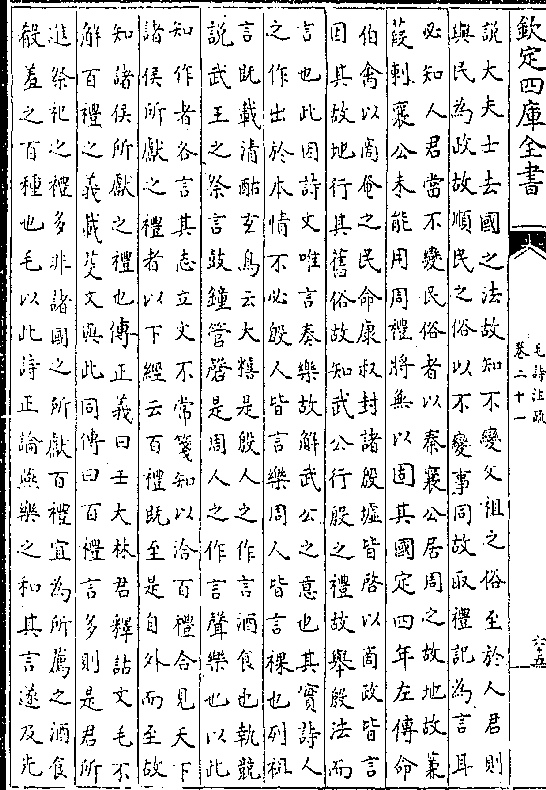 欽定四庫全書
毛詩注疏
卷二十一
六十五
說大夫士去國之法故知不變父祖之俗至於人君則
與民為政故順民之俗以不變事同故取禮記為言耳
必知人君當不變民俗者以秦襄公居周之故地故蒹
葭刺襄公未能用周禮將無以固其國定四年左傳命
伯禽以商奄之民命康叔封諸殷墟皆啓以商政皆言
因其故地行其舊俗故知武公行殷之禮故舉殷法而
言也此因詩文唯言奏樂故解武公之意也其實詩人
之作出於本情不必殷人皆言樂周人皆言祼也列祖
言既載清酤玄鳥云大糦是殷人之作言酒食也執競
說武王之祭言鼓鐘管磬是周人之作言聲樂也以此
知作者各言其志立文不常箋知以洽百禮合見天下
諸侯所獻之禮者以下經云百禮既至是自外而至故
知諸侯所獻之禮也傳正義曰壬大林君釋詁文毛不
解百禮之義載芟文與此同傳曰百禮言多則是君所
進祭祀之禮多非諸國之所獻百禮宜為所薦之酒食
殽羞之百種也毛以此詩正論燕樂之和其言遂及先